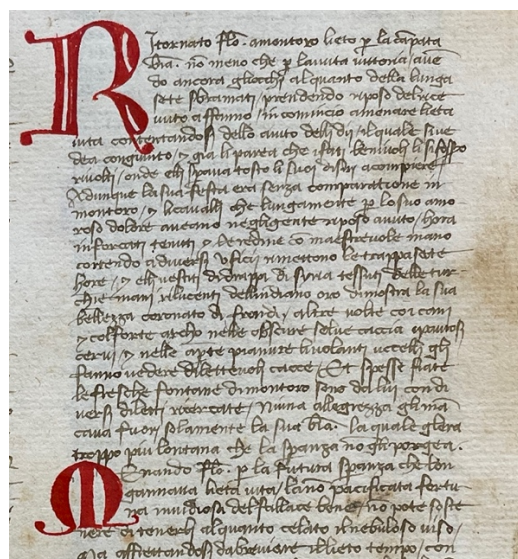 Ritornato flo. amontoro lieto p la cāpata
bia. nō meno che p lauuta uittoria / auē
do ancora gliocchi alquanto della lunga
sete sbramati / prendendo riposo del rice
uuto affanno / incomincio amenare lieta
uita contentandosi dello aiuto delli dii / ilquale si ue
dea congiunto / y gia li parea che ifati beniuoli li si fosseᵒ
riuolti / onde elli spaua tosto li suoi disiri acompiere /
Adunque la sua festa era senza comparatione in
montoro / y licaualli che lungamente p lo suo amo
roso dolore aueano negligente riposo auuto / hora
inforcati tenuti y le redine cō maestreuole mano
correndo adiuersi uficii rimettono le trappassate
hore / y elli uestiti di drappi di Siria tessuti delle tur
chie mani rilucenti dellindiano oro dimostra la sua
bellezza coronato di frondi / altre uolte co i cani
y col forte archo nelle obscure selue caccia ipaurosi
cerui / y nelle apte pianure liuolanti uccelli gli
fanno uedere diletteuoli cacce / Et spesse fiate
le fresche fontane dimontoro sono da lui con di
uersi diletti ricercate / Niuna allegrezza gli mā
caua fuori solamente la sua bia. la quale gli era
troppo piu lontana che la spanza nō gli porgea.
Menando flo. p la futura spanza che lon
gannaua lieta uita / lanō pacificata fortu
na inuidiosa del fallace bene / no pote soste
nere di tenerli alquanto celato il nebuloso uiso /
Ma affrettandosi dabreuiare illieto tempo / con